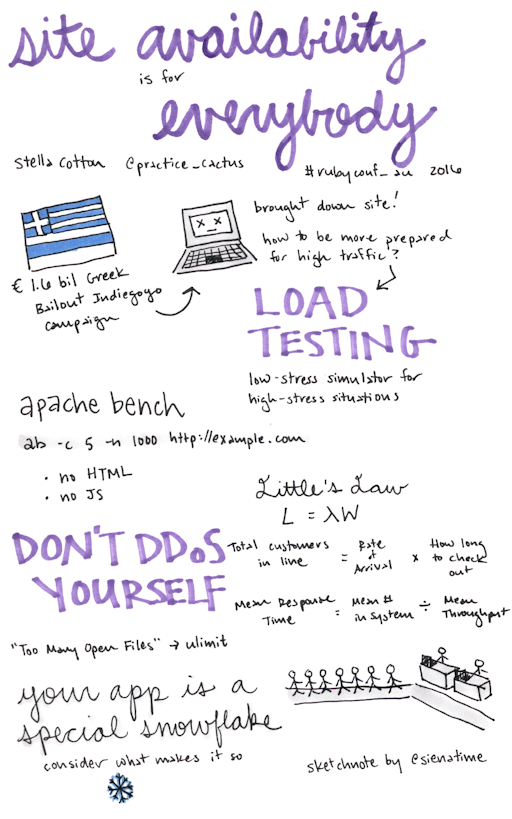 site availability
is for
everybody
Stella Cotton @practice_cactus
#rubyconf_au 2016
€ 1.6 bil Greek
Bailout Indiegogo
campaign
brought down site!
how to be more prepared
for high traffic?
LOAD
TESTING
low-stress simulator for
high-stress situations
apache bench
ab -c 5 -n 1000 http://example.com
· no HTML
· no JS
Little's Law
L = λW
DON'T DDoS
YOURSELF
Total customers in line = Rate of Arrival × How long to check out
Mean Response Time = Mean # in System ÷ Mean Throughput
"Too Many Open Files" → ulimit
your app is a
special snowflake
consider what makes it so
sketchnote by @sienatime